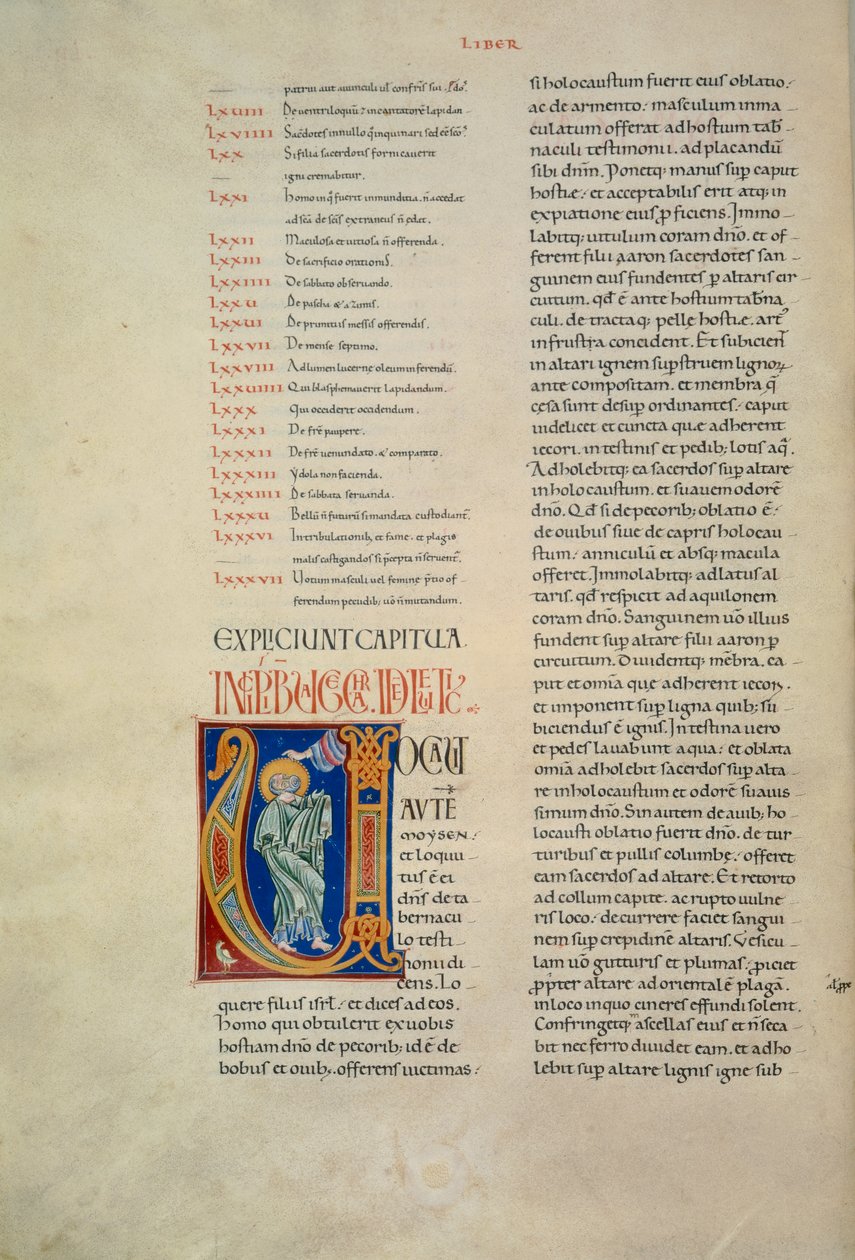 LIBER
patrui aut auunculi ul' confr̄is sui
LXVIII De uentriloquū & incantatorē lapidan
LXVIIII Sac̄dotes innullo q̄inquinari sed eē sc̄os
LXX Si filia sacerdotis fornicauerit
igni cremabitur.
LXXI Homo in q̄ fuerit inmunditia. n̄ accedat
ad sc̄a. de sc̄is extraneus n̄ edat.
LXXII Maculosa et uitiosa n̄ offerenda.
LXXIII De sacrificio orationis.
LXXIIII De sabbato obseruando.
LXXV De pascha & azimis.
LXXVI De primitiis messis offerendis.
LXXVII De mense septimo.
LXXVIII Ad lumen lucerne oleum inferendū.
LXXVIIII Qui blasphemauerit lapidandum.
LXXX Qui occiderit occidendum.
LXXXI De fr̄e paupere.
LXXXII De fr̄e uenundato. & comparato.
LXXXIII Ydola non facienda.
LXXXIIII De sabbata seruanda.
LXXXV Bellū n̄ futurū si mandata custodiant̄.
LXXXVI In tribulationib; et fame. et plagis
malis castigandos si p̄cepta n̄ seruent̄.
LXXXVII Uotum masculi uel femine p̄tio of
ferendum pecudib; uō n̄ mutandum.
EXPLICIUNT CAPITULA.
INCIPIT
UOCAUIT
AUTĒ
MOYSEN.
et loquu
tus ē ei
dn̄s de ta
bernacu
lo testi
monii di
cens. Lo
quere filiis isr̄l. et dices ad eos.
Homo qui obtulerit ex uobis
hostiam dn̄o de pecorib; id ē de
bobus et ouib;. offerens uictimas.
si holocaustum fuerit eius oblatio.
ac de armento. masculum inma
culatum offerat ad hostium tab̄
naculi testimonii. ad placandū
sibi dn̄m. Ponetq; manus sup̄ caput
hostie. et acceptabilis erit atq; in
expiatione eius p̄ficiens. Immo
labitq; uitulum coram dn̄o. et of
ferent filii aaron sacerdotes san
guinem eius fundentes p̄ altaris cir
cuitum. qd̄ ē ante hostium tab̄na
culi. detractaq; pelle hostie. art'
in frustra concident. Et subicient
in altari ignem sup̄ struem lignoꝝ
ante compositam. et membra q̄
cęsa sunt desup̄ ordinantes. caput
uidelicet et cuncta que adherent
iecori. intestinis et pedib; lotis aq̄.
Adholebitq; ea sacerdos sup̄ altare
in holocaustum. et suauem odorē
dn̄o. Qd̄ si de pecorib; oblatio ē.
de ouibus siue de capris holocau
stum. anniculū et absq; macula
offeret. Immolabitq; ad latus al
taris. qd̄ respicit ad aquilonem
coram dn̄o. Sanguinem uō illius
fundent sup̄ altare filii aaron p̄
circuitum. Diuidentq; mēbra. ca
put et omia que adherent iecori.
et imponent sup̄ ligna quib; su
biciendus ē ignis. Intestina uero
et pedes lauabunt aqua. et oblata
omia adholebit sacerdos sup̄ alta
re in holocaustum et odorē suauis
simum dn̄o. Sin autem de auib; ho
locausti oblatio fuerit dn̄o. de tur
turibus et pullis columbę. offeret
eam sacerdos ad altare. Et retorto
ad collum capite. ac rupto uulne
ris loco. decurrere faciet sangui
nem sup̄ crepidinē altaris. Uesicu
lam uō gutturis et plumas. ꝓiciet
ꝓpter altare ad orientalē plagā.
in loco in quo cineres effundi solent.
Confringetq; ascellas eius et n̄ seca
bit nec ferro diuidet eam. et adho
lebit sup̄ altare lignis igne sub